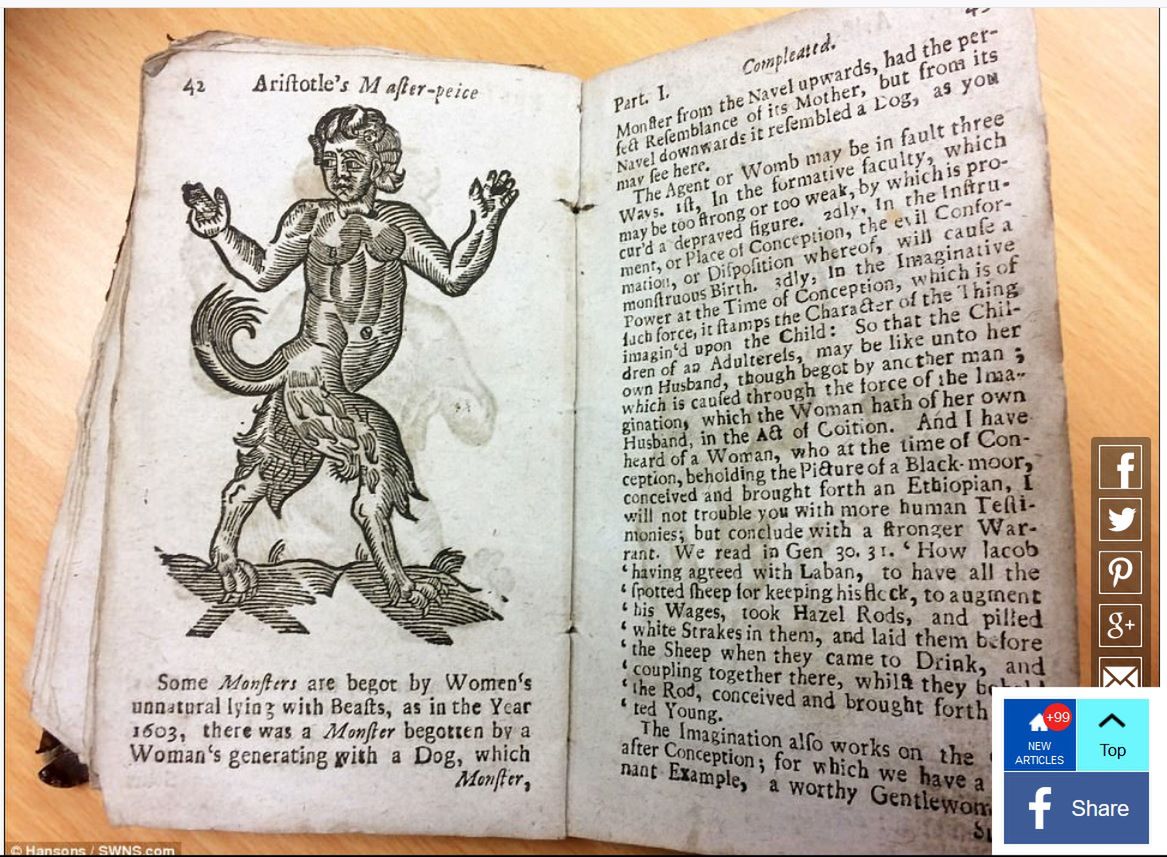 42 Ariſtotle's Maſter-peice
Some Monſters are begot by Women's
unnatural lying with Beaſts, as in the Year
1603, there was a Monſter begotten by a
Woman's generating with a Dog, which
Monſter,
Part. I. Compleated.
Monſter from the Navel upwards, had the per-
fect Reſemblance of its Mother, but from its
Navel downwards it reſembled a Dog, as you
may ſee here.
The Agent or Womb may be in fault three
Ways. 1ſt, In the formative faculty, which
may be too ſtrong or too weak, by which is pro-
cur'd a depraved figure. 2dly, In the Inſtru-
ment, or Place of Conception, the evil Confor-
mation, or Diſpoſition whereof, will cauſe a
monſtruous Birth. 3dly, In the Imaginative
Power at the Time of Conception, which is of
ſuch force, it ſtamps the Character of the Thing
imagin'd upon the Child: So that the Chil-
dren of an Adultereſs, may be like unto her
own Husband, though begot by another man;
which is cauſed through the force of the Ima-
gination, which the Woman hath of her own
Husband, in the Act of Coition. And I have
heard of a Woman, who at the time of Con-
ception, beholding the Picture of a Black-moor,
conceived and brought forth an Ethiopian, I
will not trouble you with more human Teſti-
monies; but conclude with a ſtronger War-
rant. We read in Gen 30. 31. ‘How Jacob
‘having agreed with Laban, to have all the
‘ſpotted ſheep for keeping his flock, to augment
‘his Wages, took Hazel Rods, and pilled
‘white Strakes in them, and laid them before
‘the Sheep when they came to Drink, and
‘coupling together there, whilſt they
‘the Rod, conceived and brought forth
‘ted Young.
The Imagination alſo works on the
after Conception; for which we have a
nant Example, a worthy
+99
NEW
ARTICLES
Top
Share
© Hansons / SWNS.com